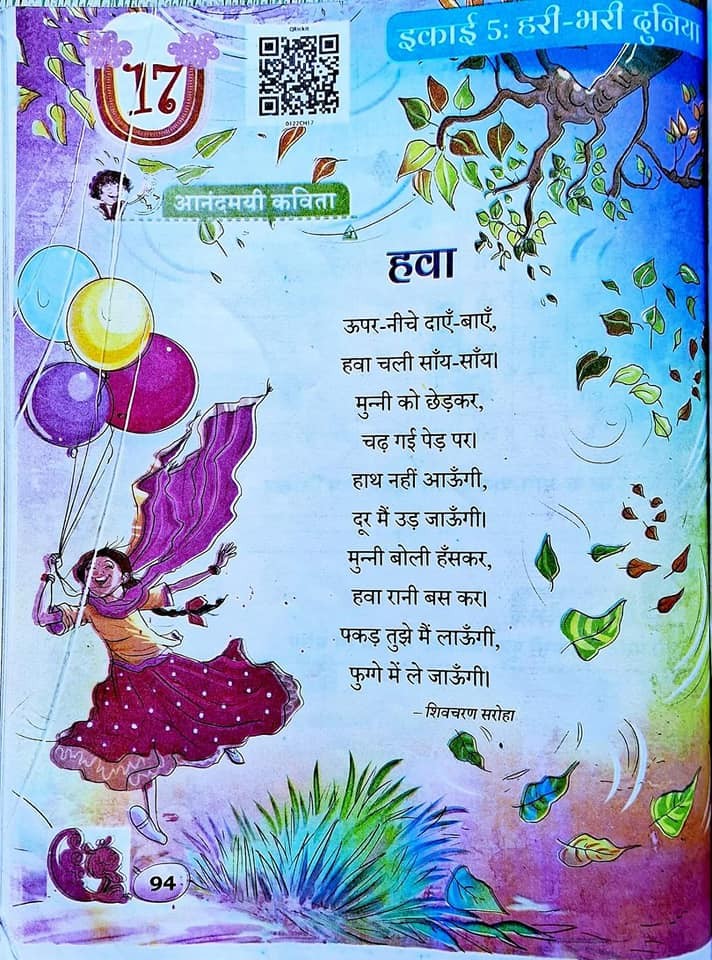 इकाई 5: हरी-भरी दुनिया
17
0122CH17
आनंदमयी कविता
हवा
ऊपर-नीचे दाएँ-बाएँ,
हवा चली साँय-साँय।
मुन्नी को छेड़कर,
चढ़ गई पेड़ पर।
हाथ नहीं आऊँगी,
दूर मैं उड़ जाऊँगी।
मुन्नी बोली हँसकर,
हवा रानी बस कर।
पकड़ तुझे मैं लाऊँगी,
फुग्गे में ले जाऊँगी।
– शिवचरण सरोहा
94